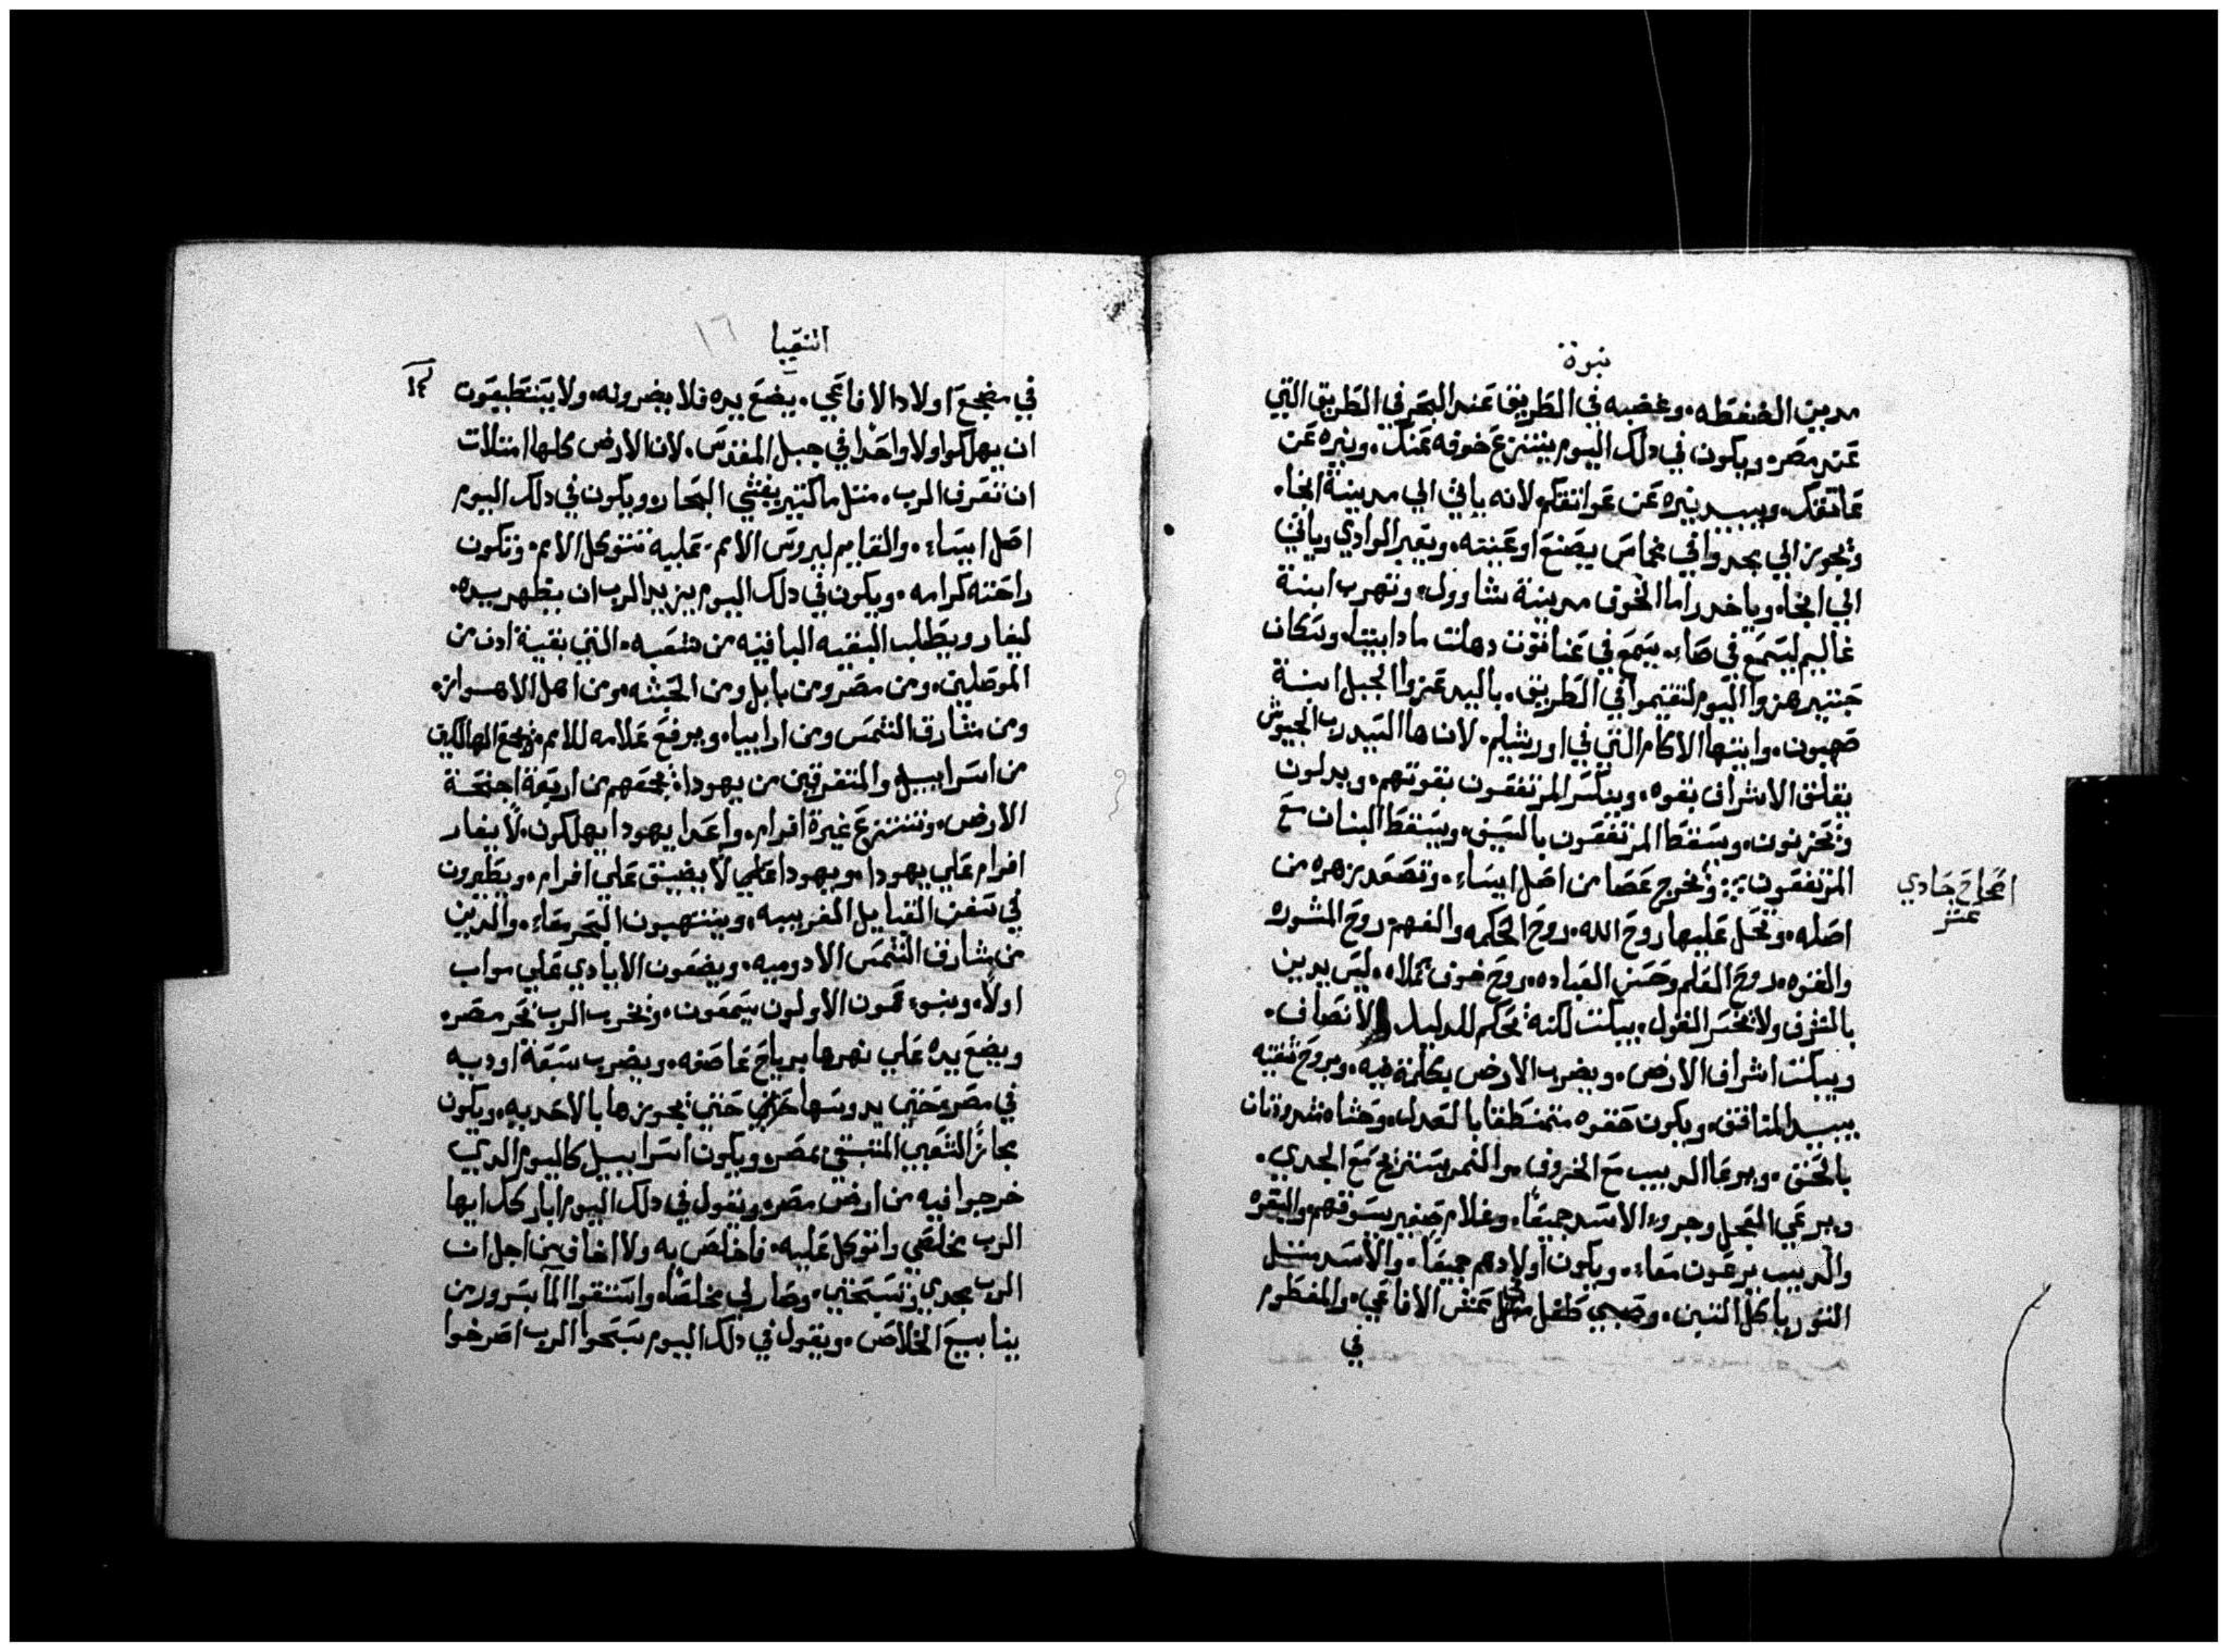 نبوة
مدين الضغطه. وغضبه في الطريق عند البحر في الطريق التي
عند مصر. ويكون في دلك اليوم يننزع خوفه عنك. ونيره عن
عاتقك. ويبيد نيره عن عواتقكم لانه ياتي الي مدينة انجا.
وبجوز الي مجدوا في مخماس يصنع اوعيته. ويعبر الوادي وياتي
الي انجا. وياخد راما الخوف مدينة شاوول. وتهرب ابنة
غاليم ليسمع في صا. يسمع في عناتوت دهلت مادابينا. وسكان
جنتير هزوا اليوم لتقيموا في الطريق. باليد عزوا الجبل ابنة
صهيون. وايتها الاكام التي في اورشليم. لان ها السيد رب الجيوش
يقلق الاشراف بقوه. وينكسر المرتفعون بقوتهم. ويدلون
وتحزنون. وسقط المرتفعون بالسيف. ويسقط البنان مع
المرتفعون وتخرج عصا من اصل ايساء. وتصعد زهره من
اصله. وتحل عليها روح الله. روح الحكمه والفهم روح المشوره
والقوه. روح العلم وحسن العباده. روح خوف تملاه. ليس يدين
بالشرف ولا بخسر القول. يبكت لكنه تحكم للدليل الانصاف.
ويبكت اشراف الارض. ويضرب الارض بكلمة فيه. وبروح شفتيه
يبيد المنافق. ويكون حقوه متمنطقا بالعدل. وحشاه مشدودتان
بالحق. ويرعا الديب مع الخروف. والنمر يستريح مع الجدي.
ويرعي العجل وجروء الاسد جميعا. وغلام صغير يسوقهم. والبقره
والديب يرعون معاء. ويكون اولادهم جميعا. والاسد متل
التور ياكل التبن. وصبي طفل عش الافاعي. والمفطوم
في
اصحاح حادي
عشر
اشعيا
١٦
١٤
في مضجع اولاد الافاعي. يضع يده فلا يضرونه. ولا يستطيعون
ان يهلكوا ولا واحدا في جبل المقدس. لان الارض كلها امتلات
ان تعرف الرب. متل ما كتير يغشي البحار. ويكون في دلك اليوم
اصل ايساء. والقايم ليروس الامم. عليه تتوكل الامم. وتكون
راحته كرامه. ويكون في دلك اليوم يزيد الرب ان يظهر يده.
ليغار ويطلب البقيه الباقيه من شعبه. التي بقية ادن من
الموصلين. ومن مصر ومن بابل ومن الحبشه. ومن اهل الاهواز.
ومن مشارق الشمس ومن ارابيا. ويرفع علامه للامم. ويجمع الهالكين
من اسراييل والمتفرقين من يهودا. يجمعهم من اربعة اجنحة
الارض. وتنتزع غيرة افرام. واعدا يهودا يهلكون. لا يغار
افرام علي يهودا. ويهودا علي لا يضيق علي افرام. ويطيرون
في سفن القبايل الغريبه. وينتهبون البحر معاء. والدين
من مشارق الشمس الادوميه. ويضعون الايادي علي مواب
اولا. وبنو عمون الاولون يسمعون. وتخرب الرب بحر مصر.
ويضع يده علي نهرها برياح عاصفه. ويضرب سبعة اوديه
في مصر حتي يدوسها حتي بجوزها بالاحديه. ويكون
مجاز الشعبي المتبقي بمصر. ويكون اسراييل كاليوم الدي
خرجوا فيه من ارض مصر. ويقول في دلك اليوم اباركك ايها
الرب مخلصي واتوكل عليه. فاخلص به ولا اخاف من اجل ان
الرب مجدي وتسبحتي. وصار لي مخلصا. واستقوا الما بسرور من
ينابيع الخلاص. ويقول في دلك اليوم سبحوا الرب اصرخوا